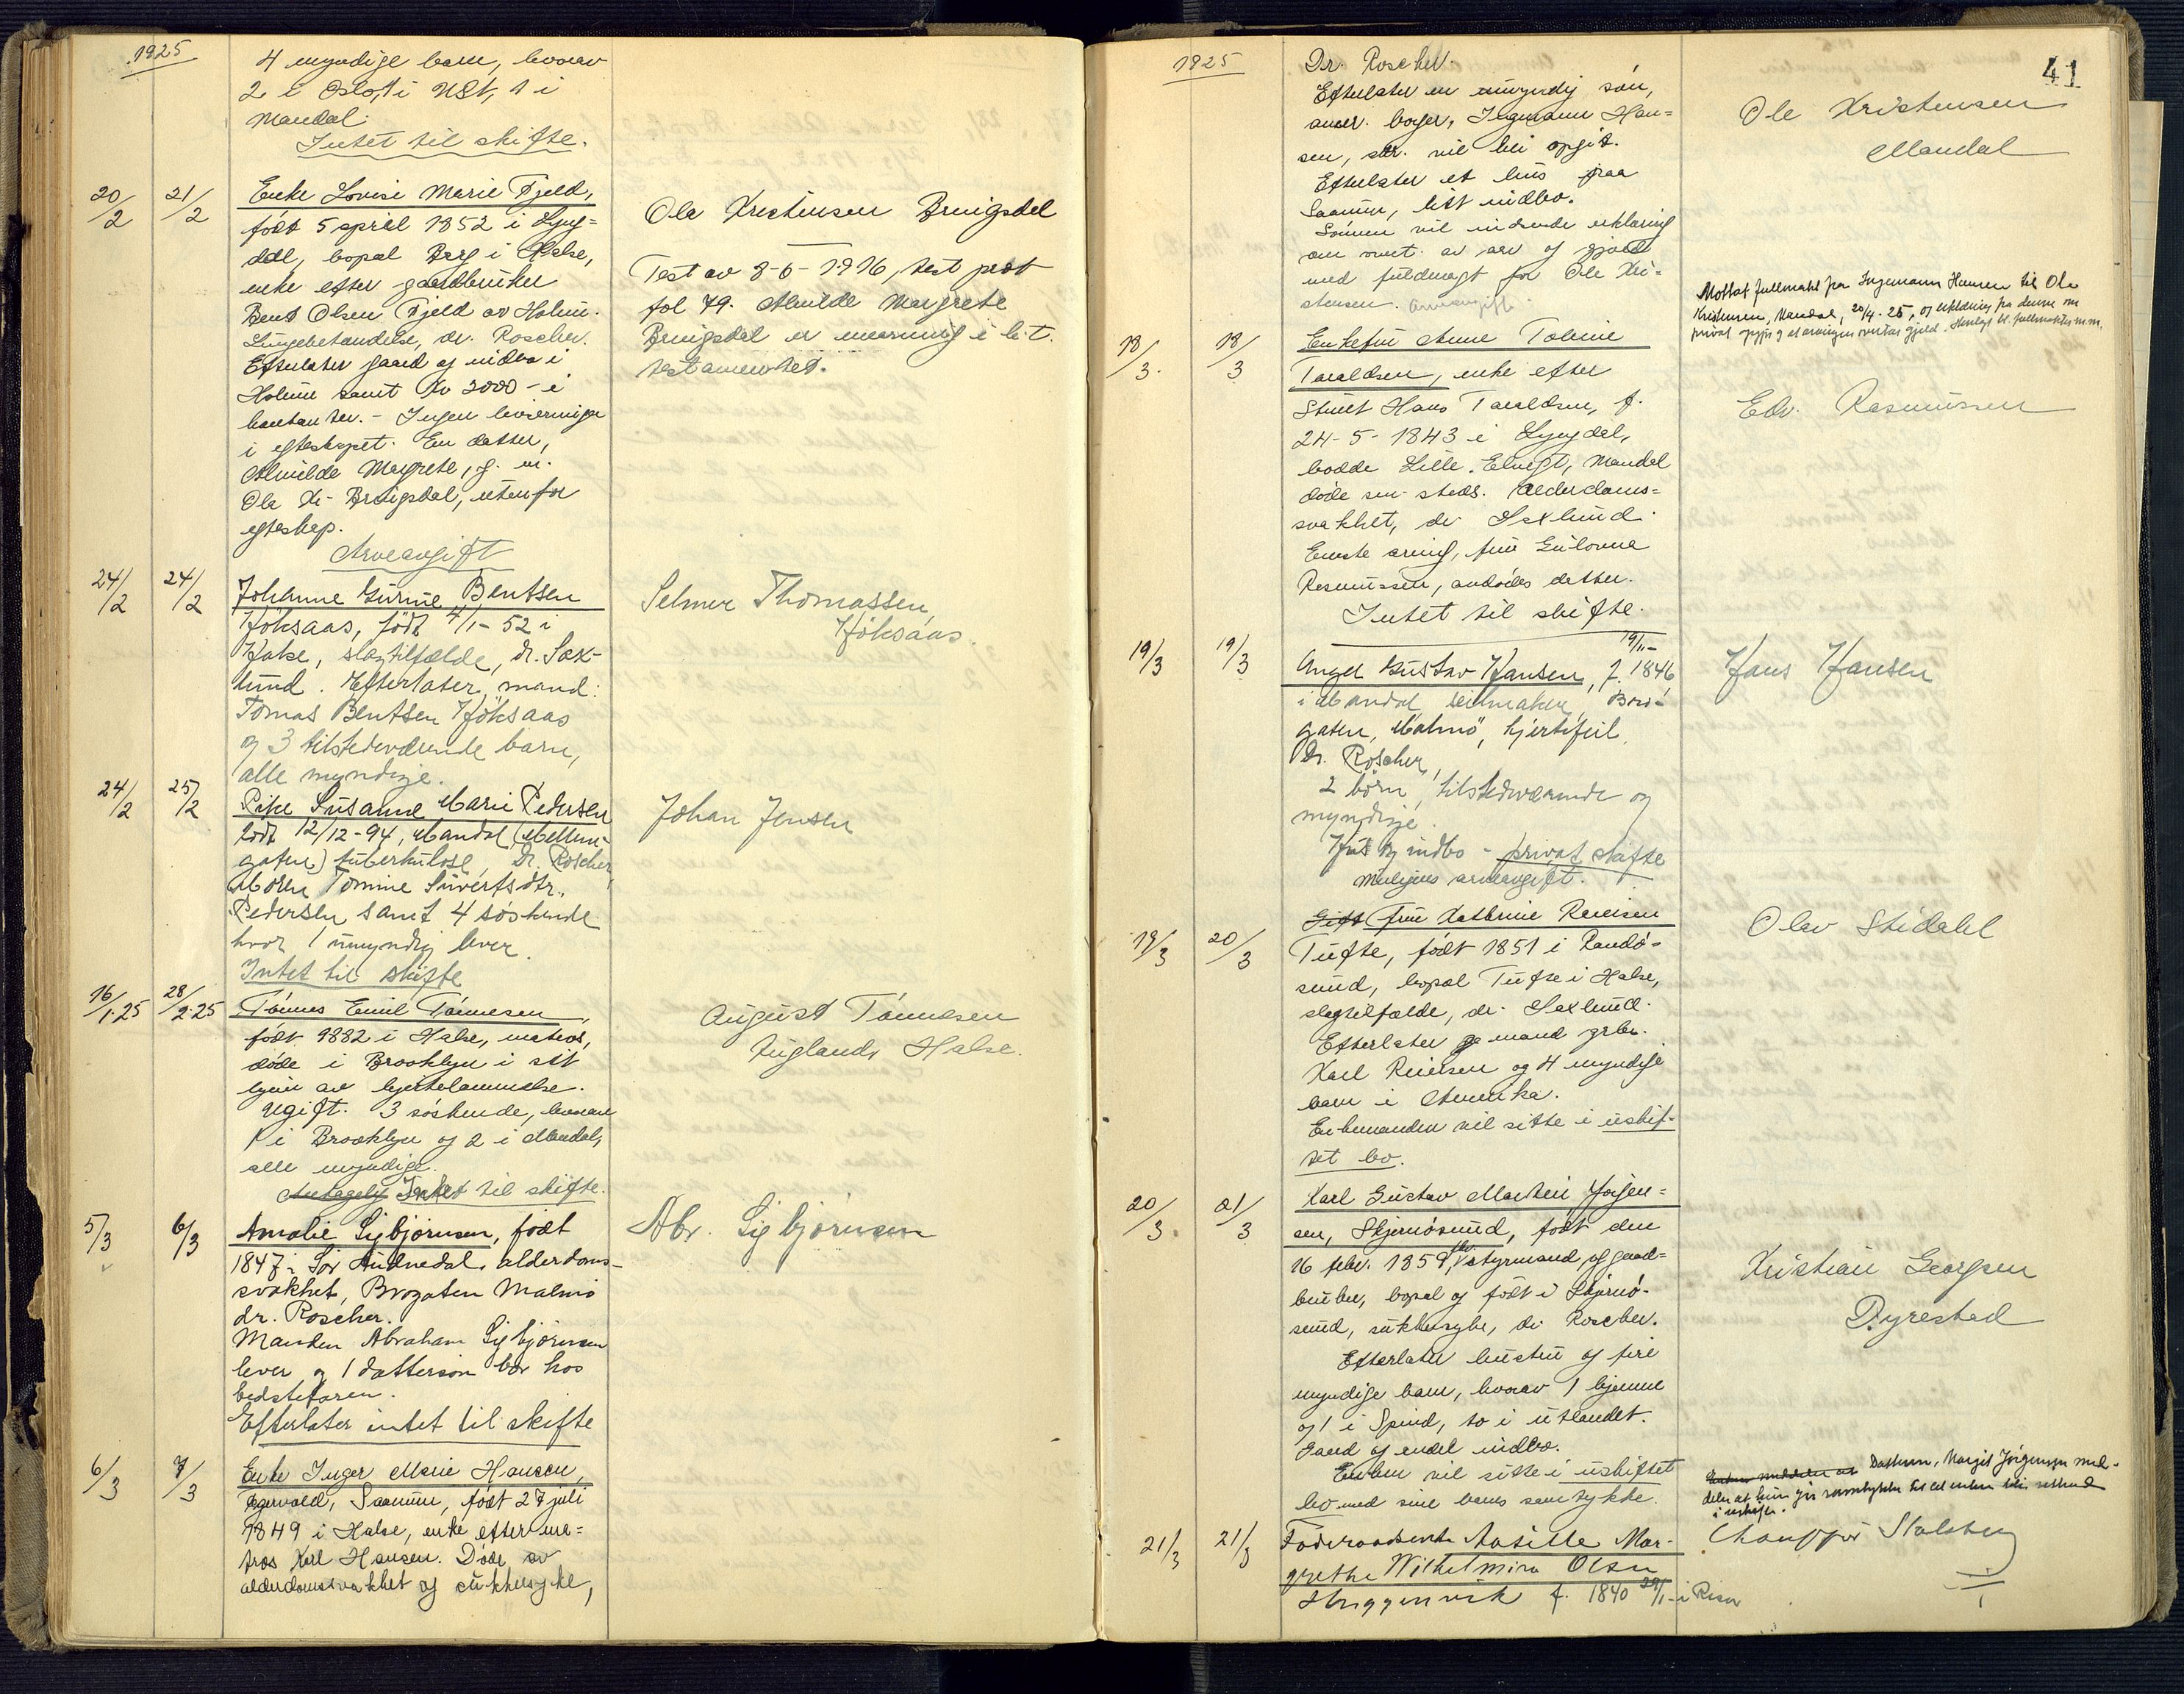 1925
4 myndige barn, hvorav
2 i Oslo, 1 i USA, 1 i
Mandal.
Intet til skifte.
20/2 21/2
Enke Lovise Marie Fjeld,
født 5 april 1852 i Lyng=
dal, bopæl Berg i Halse,
enke efter gaardbruker
Bent Olsen Fjeld av Holum.
Lungebetændelse, dr. Roscher.
Efterlater gaard og indbo i
Holum samt Kr 2000 - i
kontanter. - Ingen livsarvinger
i egteskapet. En datter,
Alvilde Margrete, g. m.
Ole Kr. Bruigsdal, utenfor
egteskap.
Arveavgift
Ole Kristensen Bruigsdal
Test av 8-6-1916, test prot
fol 79. Alvilde Margrete
Bruigsdal er enearving i h. t.
testamentet.
24/2 24/2
Johanne Gurine Bentsen
Høksaas, født 4/1-52 i
Halse, slagtilfælde, dr. Sax-
lund. Efterlater mand:
Tomas Bentsen Høksaas
og 3 tilstedeværende barn,
alle myndige.
Selmer Thomassen
Høksaas.
24/2 25/2
Pike Susanne Marie Pedersen
født 12/12-94, Mandal (Mellem-
gaten) tuberkulose, Dr. Roscher,
Moren Tomine Sivertsdtr.
Pedersen samt 4 søskende
hvor 1 umyndig lever.
Intet til skifte
Johan Jensen
16/1.25 28/2.25
Tønnes Emil Tønnesen,
født 1882 i Halse, matros,
døde i Brooklyn i sit
hjem av hjertelammelse.
Ugift. 3 søskende, hvorav
1 i Brooklyn og 2 i Mandal,
alle myndige.
Antagelig Intet til skifte.
August Tønnesen
Fuglands Halse.
5/3 6/3
Amalie Sigbjørnsen, født
1847 i Sør Audnedal, alderdoms-
svakhet, Brogaten Malmø
dr. Roscher.
Manden Abraham Sigbjørnsen
lever og 1 datterson bor hos
bedstefaren.
Efterlater intet til skifte
Abr. Sigbjørnsen
6/3 7/3
Enke Inger Marie Hansen,
Egervold, Sannum, født 27 juli
1849 i Halse, enke efter ma=
tros Karl Hansen. Døde av
alderdomssvakhet og sukkersyke,
1925
41
Dr. Roscher.
Efterlater en umyndig søn,
amer. borger, Ingemann Han=
sen, adr. vil bli opgit.
Efterlater et hus paa
Sannum, litt indbo.
Sønnen vil indsende erklæring
om overt. av arv og gjæld
med fuldmagt for Ole Kri=
stensen. Arveavgift.
Ole Kristensen
Mandal
Mottat fullmakt fra Ingemann Hansen til Ole
Kristensen, Mandal, 20/4-25, og erklæring fra denne om
privat opgjør og at arvingen overtar gjeld. Henlagt bl. fullmakter m.m.
18/3. 18/3
Enkefru Anne Tobine
Taraldsen, enke efter
Stuert Hans Taraldsen, f.
24-5-1843 i Lyngdal,
bodde Lille Elvegt, Mandal
døde sm. steds. Alderdoms=
svakhet, dr. Saxlund.
Eneste arving, fru Gulovna
Rasmussen, avdødes datter.
Intet til skifte.
Edv. Rasmussen
19/3 19/3
Angel Gustav Hansen, f. 19/11-1846
i Mandal, seilmaker, Bro-
gaten, Malmø, hjertefeil.
Dr. Roscher,
2 børn, tilstedeværende og
myndige.
Hus og indbo - privat skifte
muligens arveavgift.
Hans Hansen
19/3 20/3
Gift Fru Kathrine Reiersen
Tufte, født 1851 i Randø-
sund, bopæl Tufte i Halse,
slagtilfælde, dr. Saxlund.
Efterlater mand grbr.
Karl Reiersen og 4 myndige
barn i Amerika.
Enkemanden vil sitte i uskif-
tet bo.
Olav Stidahl
20/3. 21/3
Karl Gustav Martin Jørgen=
sen, Skjernøsund, født den
16 febr. 1859, fhv. styrmand og gaard=
bruker, bopæl og født i Skjernø-
sund, sukkersyke, dr. Roscher.
Efterlater hustru og fire
myndige barn, hvorav 1 hjemme
og 1 i Spind, to i utlandet.
Gaard og endel indbo.
Enken vil sitte i uskiftet
bo med sine barns samtykke.
Kristian Georgsen
Dyrestad
Enken meddeler at Datteren, Margit Jörgensen med-
deler at hun gir samtykke til at enken blir sittende
i uskifte.
21/3 21/3
Föderaadsenke Aasille Mar-
grethe Wilhelmina Olsen
Skuggenvik f. 1840 29/1- i Risør
Chauffør Stolsberg